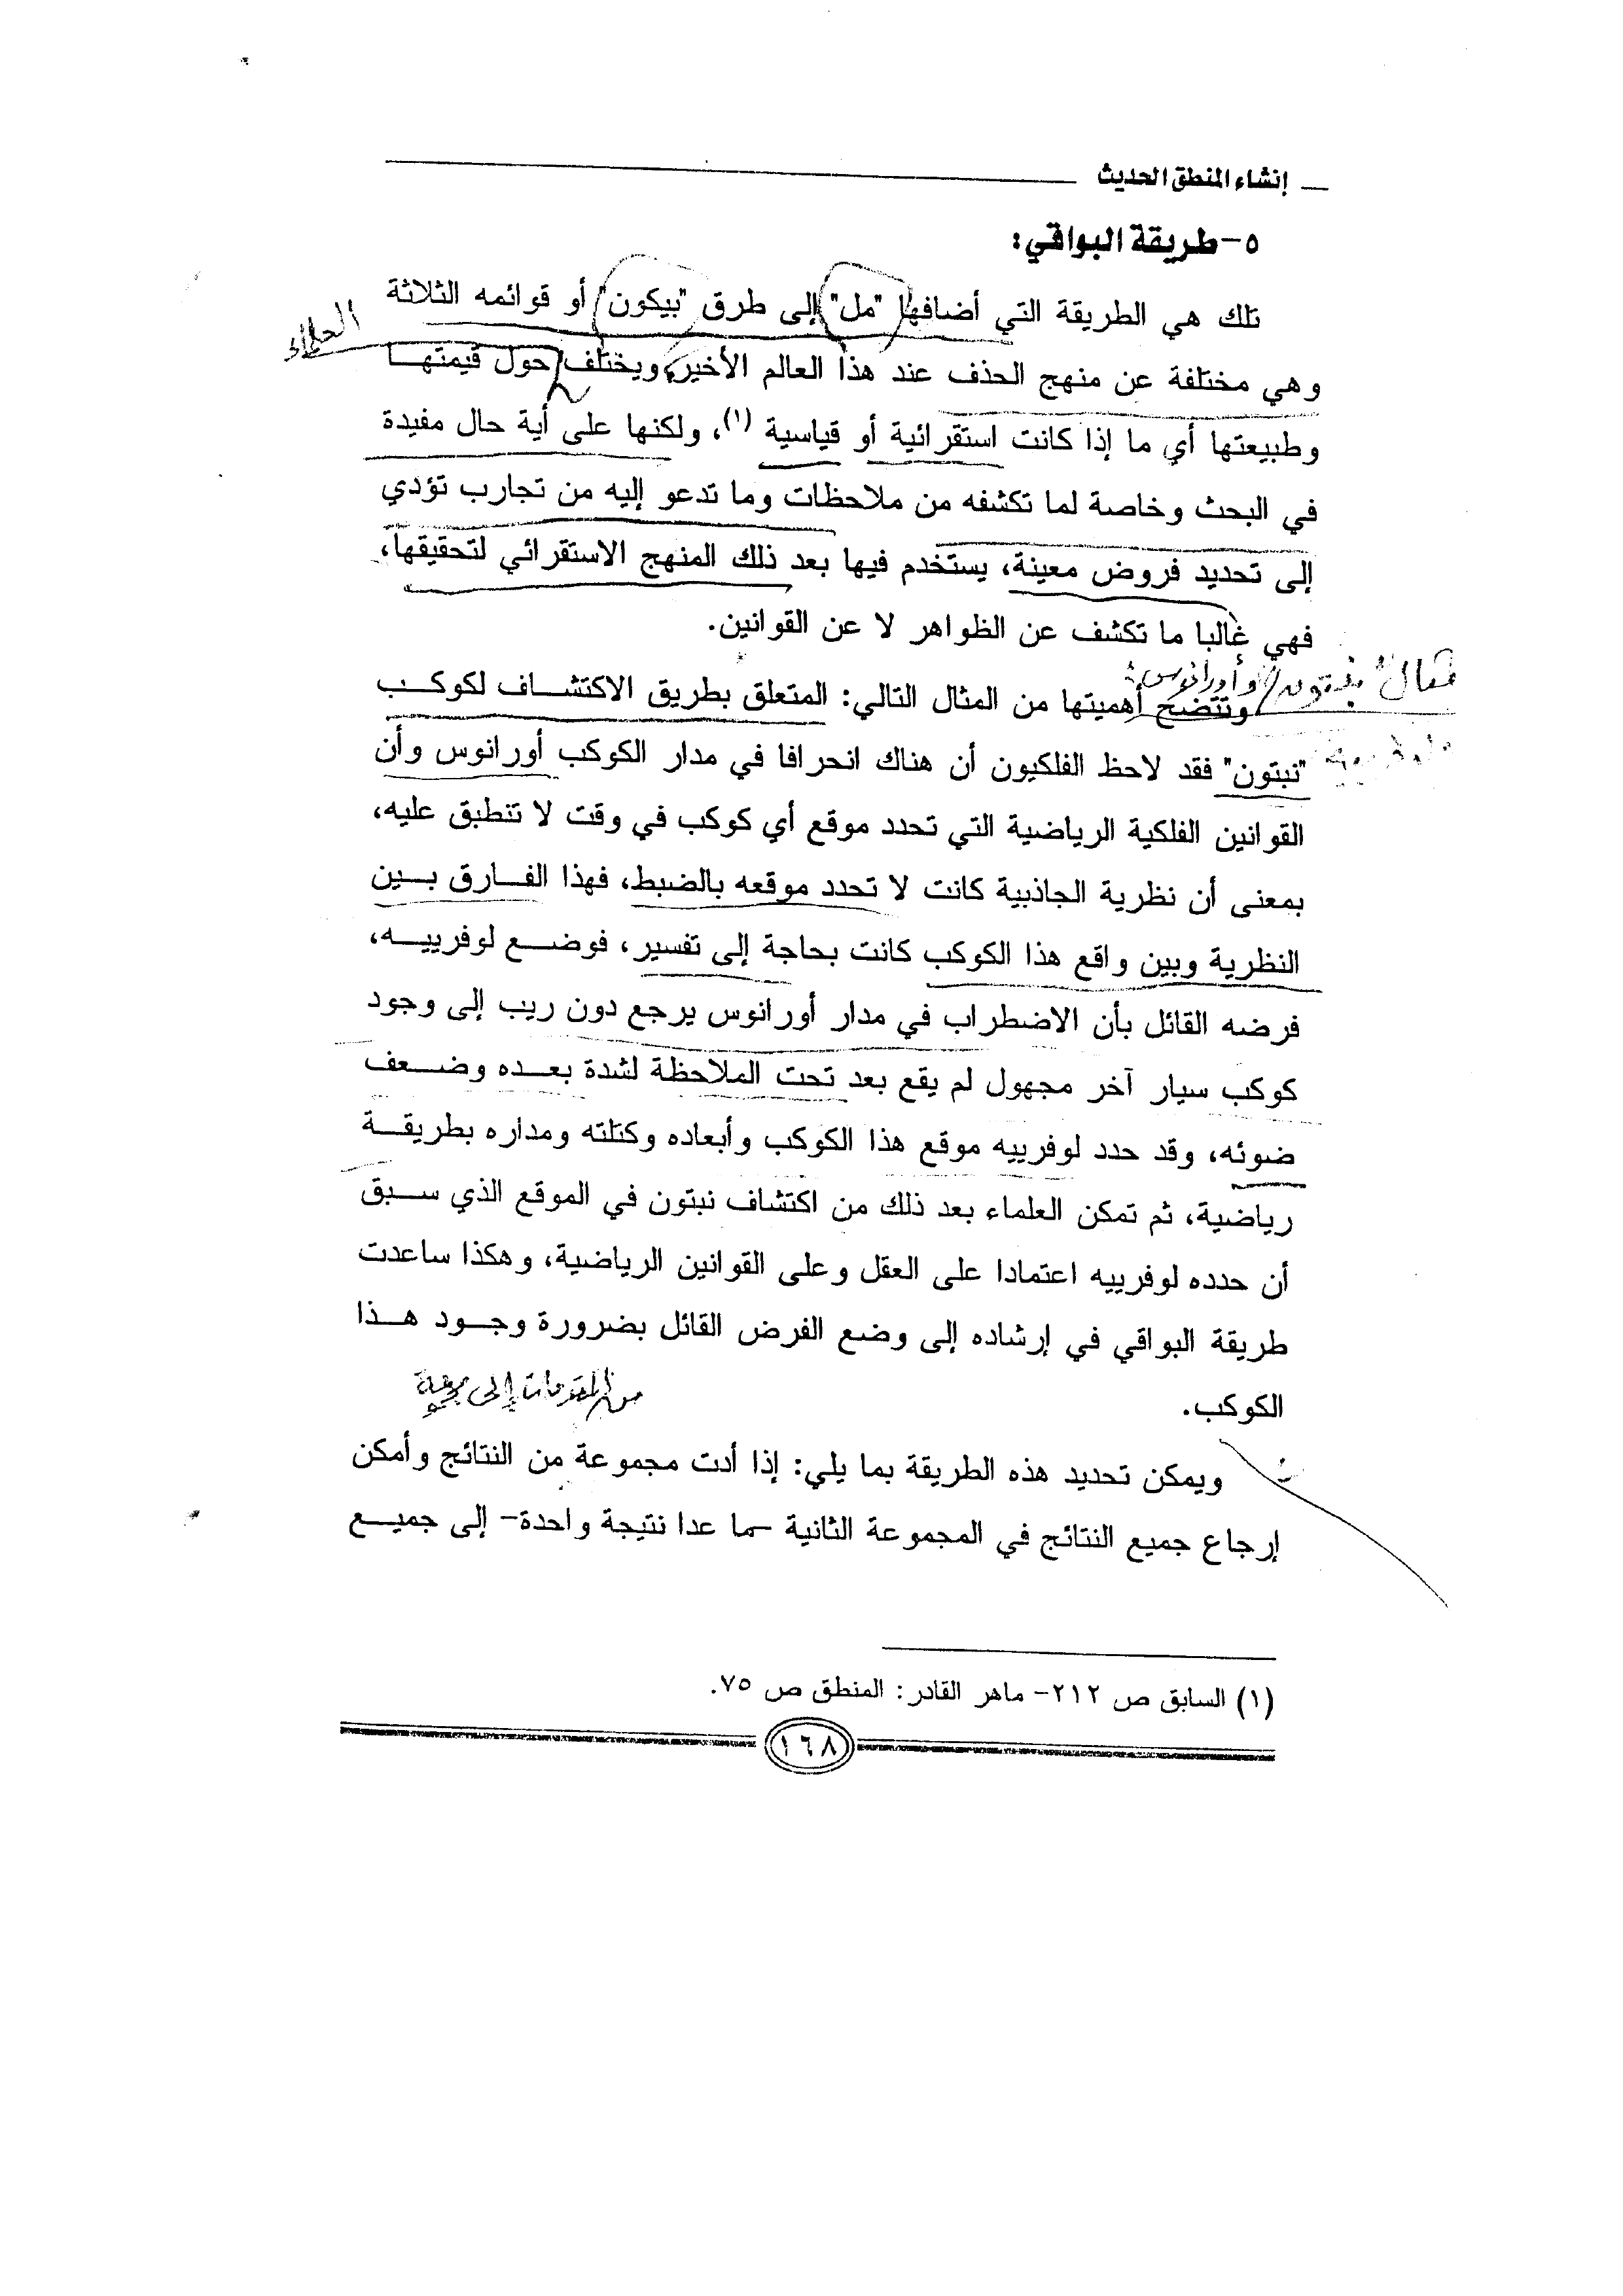 إنشاء المنطق الحديث
٥-طريقة البواقي:
تلك هي الطريقة التي أضافها "مل" إلى طرق "بيكون" أو قوائمه الثلاثة
العلماء
وهي مختلفة عن منهج الحذف عند هذا العالم الأخير، ويختلف حول قيمتها
وطبيعتها أي ما إذا كانت استقرائية أو قياسية (١)، ولكنها على أية حال مفيدة
في البحث وخاصة لما تكشفه من ملاحظات وما تدعو إليه من تجارب تؤدي
إلى تحديد فروض معينة، يستخدم فيها بعد ذلك المنهج الاستقرائي لتحقيقها،
فهي غالبا ما تكشف عن الظواهر لا عن القوانين.
مثال "نبتون" وأورانوس:
وتتضح أهميتها من المثال التالي: المتعلق بطريق الاكتشاف لكوكب
"نبتون" فقد لاحظ الفلكيون أن هناك انحرافا في مدار الكوكب أورانوس وأن
القوانين الفلكية الرياضية التي تحدد موقع أي كوكب في وقت لا تنطبق عليه،
بمعنى أن نظرية الجاذبية كانت لا تحدد موقعه بالضبط، فهذا الفارق بين
النظرية وبين واقع هذا الكوكب كانت بحاجة إلى تفسير، فوضع لوفرييه،
فرضه القائل بأن الاضطراب في مدار أورانوس يرجع دون ريب إلى وجود
كوكب سيار آخر مجهول لم يقع بعد تحت الملاحظة لشدة بعده وضعف
ضوئه، وقد حدد لوفرييه موقع هذا الكوكب وأبعاده وكتلته ومداره بطريقة
رياضية، ثم تمكن العلماء بعد ذلك من اكتشاف نبتون في الموقع الذي سبق
أن حدده لوفرييه اعتمادا على العقل وعلى القوانين الرياضية، وهكذا ساعدت
طريقة البواقي في إرشاده إلى وضع الفرض القائل بضرورة وجود هذا
الكوكب.
من المقدمات إلى
ويمكن تحديد هذه الطريقة بما يلي: إذا أدت مجموعة من النتائج وأمكن
إرجاع جميع النتائج في المجموعة الثانية -ما عدا نتيجة واحدة- إلى جميع
(١) السابق ص ٢١٢- ماهر القادر: المنطق ص ٧٥.
١٦٨